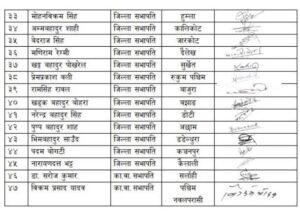 ३३ मोहनविक्रम सिंह जिल्ला सभापति हुम्ला
३४ अम्मबहादुर शाही जिल्ला सभापति कालिकोट
३५ वेदराज सिंह जिल्ला सभापति जाजरकोट
३६ मणिराम रेग्मी जिल्ला सभापति दैलेख
३७ खड्ग बहादुर पोखरेल जिल्ला सभापति सुर्खेत
३८ प्रेमप्रकाश वली जिल्ला सभापति रुकुम पश्चिम
३९ रामसिंह रावल जिल्ला सभापति बाजुरा
४० खड्क बहादुर बोहरा जिल्ला सभापति बझाङ
४१ नरेन्द्र बहादुर सिंह जिल्ला सभापति डोटी
४२ पुष्प बहादुर शाह जिल्ला सभापति अछाम
४३ भिमबहादुर साउद जिल्ला सभापति डडेल्धुरा
४४ पदम बोगटी जिल्ला सभापति कञ्चनपुर
४५ नारायणदत्त भट्ट जिल्ला सभापति कैलाली
४६ डा. सरोज कुमार का.बा. सभापति सर्लाही
४७ विक्रम प्रसाद यादव का.बा. सभापति पश्चिम
नवलपरासी